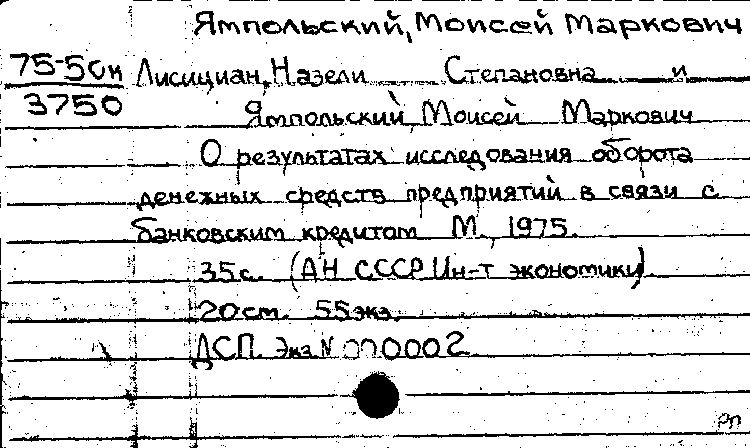 Ямпольский, Моисей Маркович
75-50к Лисициан, Назели Степановна и
3750
Ямпольский, Моисей Маркович
О результатах исследования оборота
денежных средств предприятий в связи с
банковским кредитом М., 1975.
35с. (АН СССР Ин-т экономики)
20см. 55экз.
ДСП. Экз. N 000002
РП